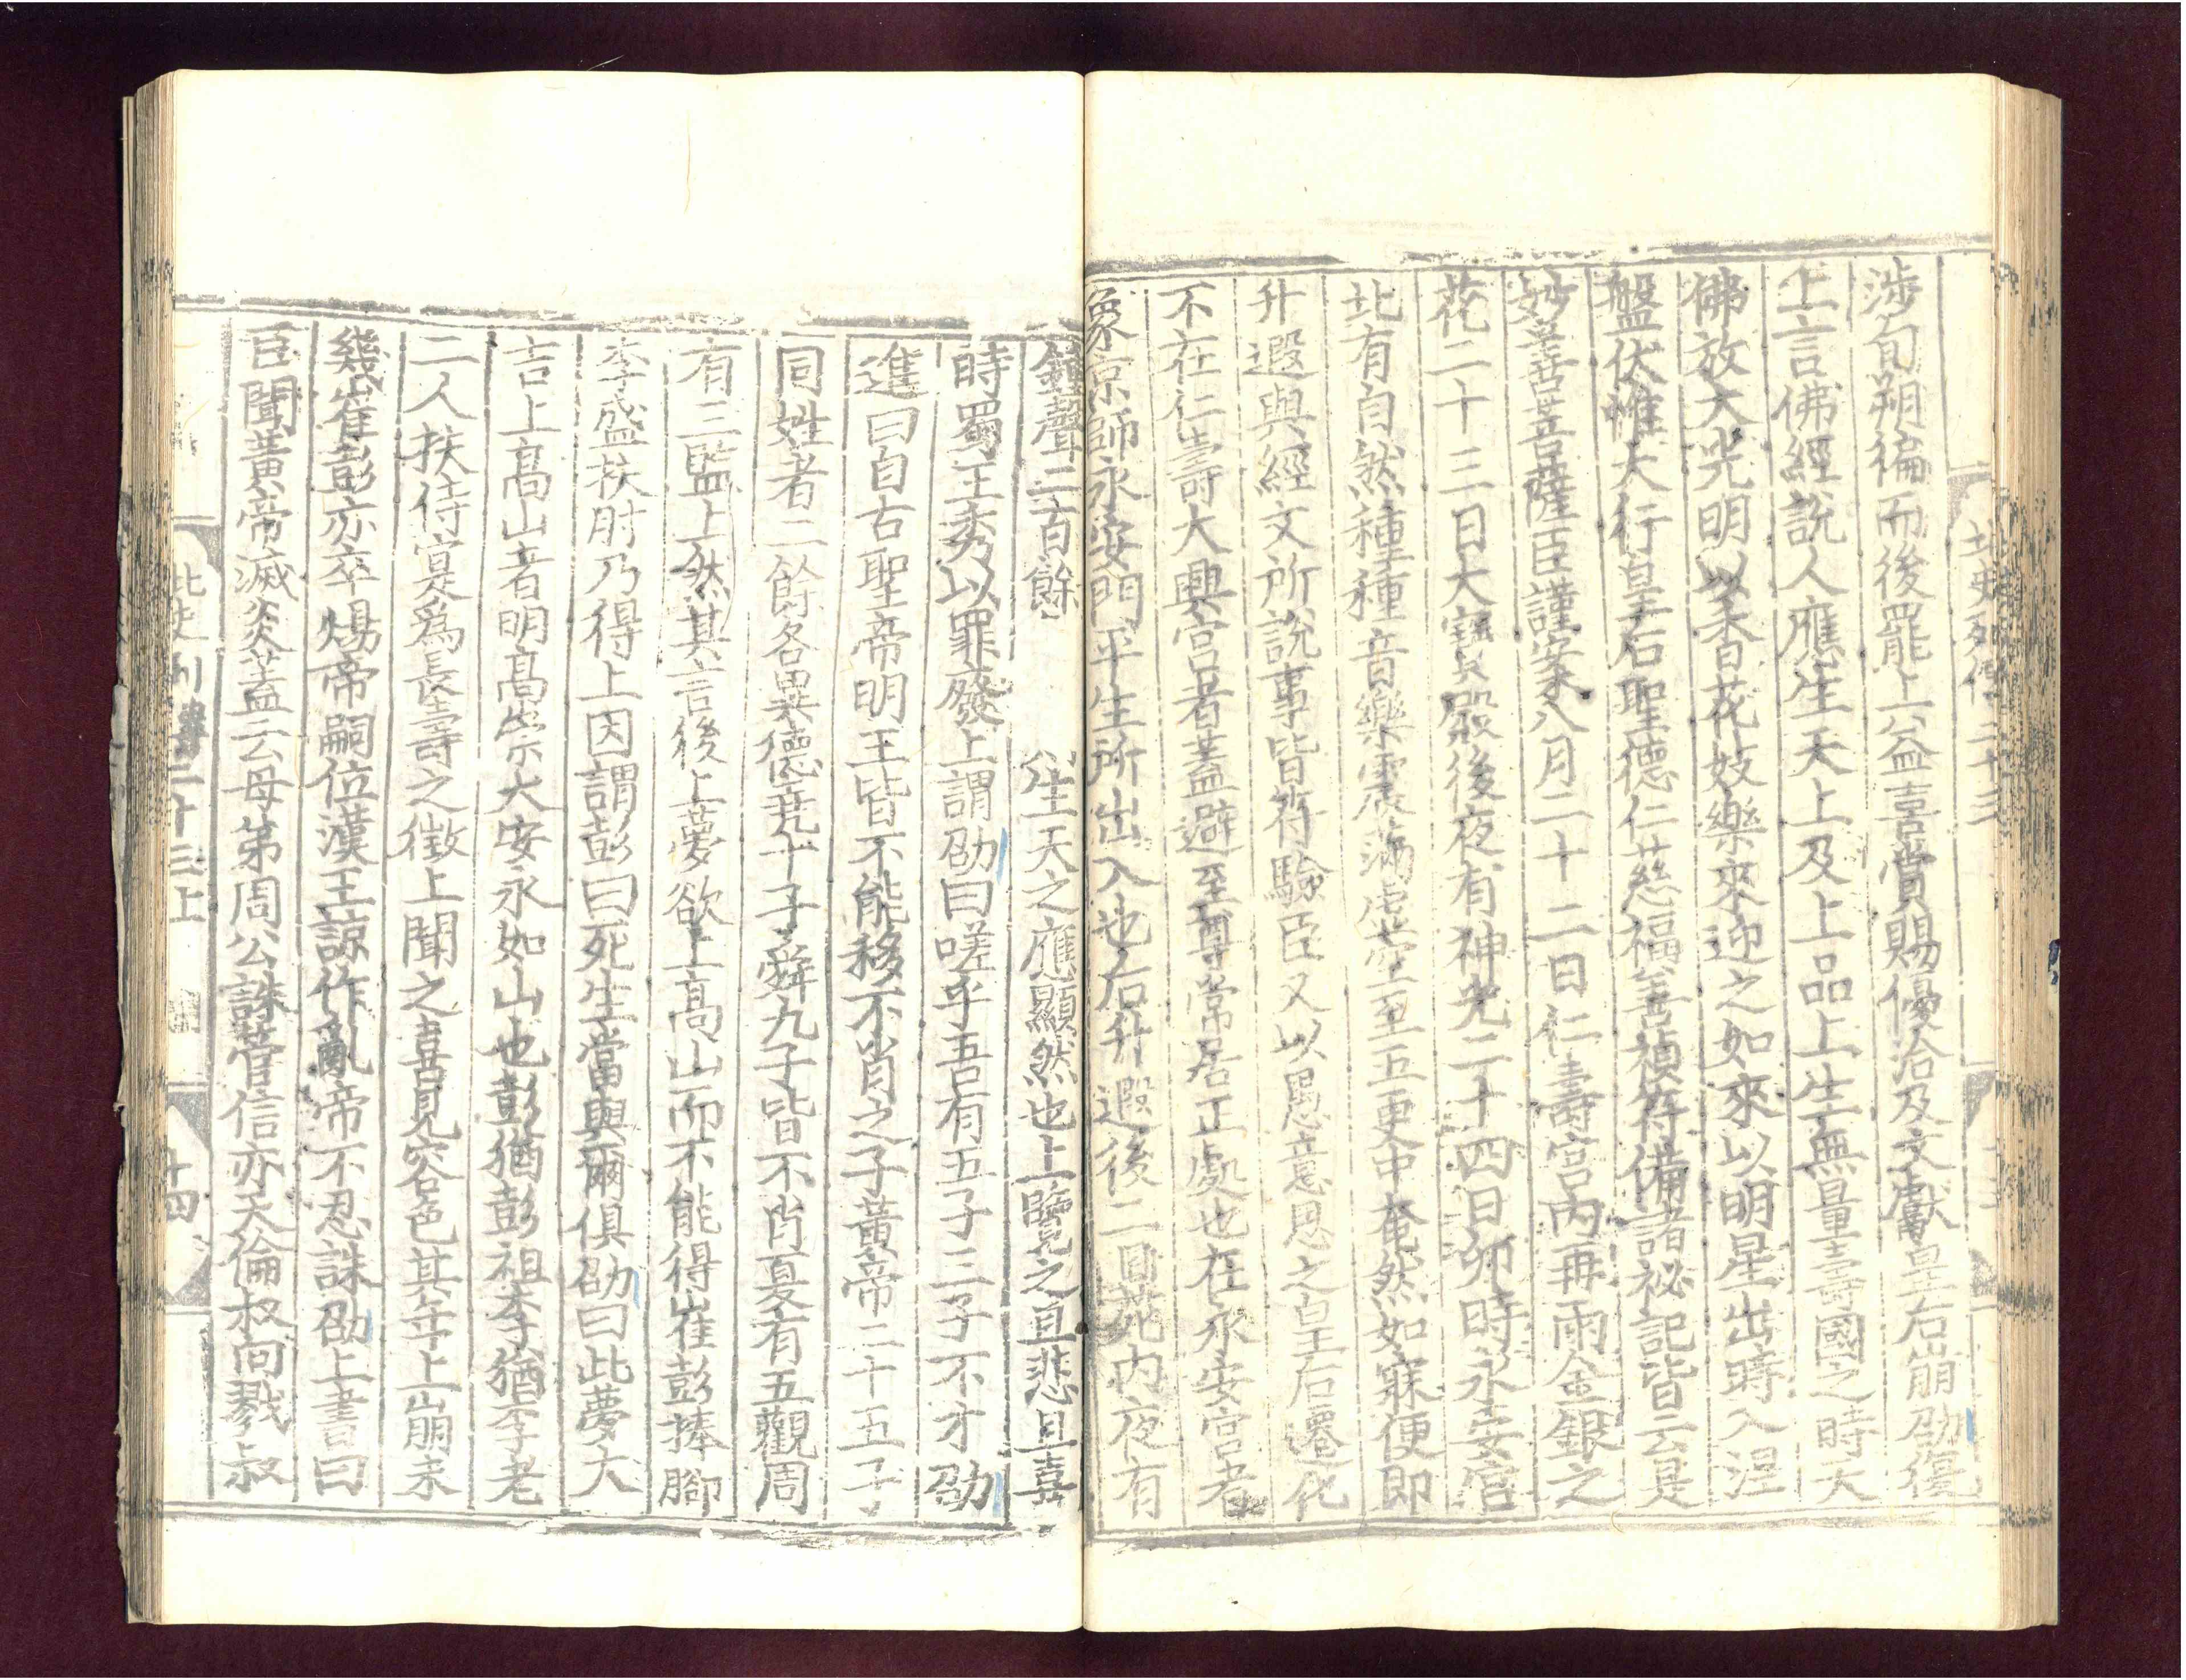 北史列傳二十三
涉旬朔徧而後罷上益喜賞賜優洽及文獻皇后崩劭復
上言佛經說人應生天上及上品上生無量壽國之時天
佛放大光明以香花妓樂來迎之如來以明星出時入涅
盤伏惟大行皇后聖德仁慈福善禎符備諸祕記皆云是
妙善菩薩臣謹案八月二十二日仁壽宮內再雨金銀之
花二十三日大寶殿後夜有神光二十四日卯時永安宮
北有自然種種音樂震滿虛空至五更中奄然如寐便即
升遐與經文所說事皆符驗臣又以愚意思之皇后遷化
不在仁壽大興宮者蓋避至尊常居正處也在永安宮者
象京師永安門平生所出入也后升遐後二日苑內夜有
鐘聲二百餘
生天之應顯然也上覽之且悲且喜
時蜀王秀以罪廢上謂劭曰嗟乎吾有五子三子不才劭
進曰自古聖帝明王皆不能移不肖之子黃帝二十五子
同姓者二餘各異德堯十子舜九子皆不肖夏有五觀周
有三監上然其言後上夢欲上高山而不能得崔彭捧腳
李盛扶肘乃得上因謂彭曰死生當與爾俱劭曰此夢大
吉上高山者明高崇大安永如山也彭猶彭祖李猶李老
二人扶侍寔爲長壽之徵上聞之喜見容色其年上崩未
幾崔彭亦卒煬帝嗣位漢王諒作亂帝不忍誅劭上書曰
臣聞黃帝滅炎蓋云母弟周公誅管信亦天倫叔向戮叔
北史列傳二十三上
十四